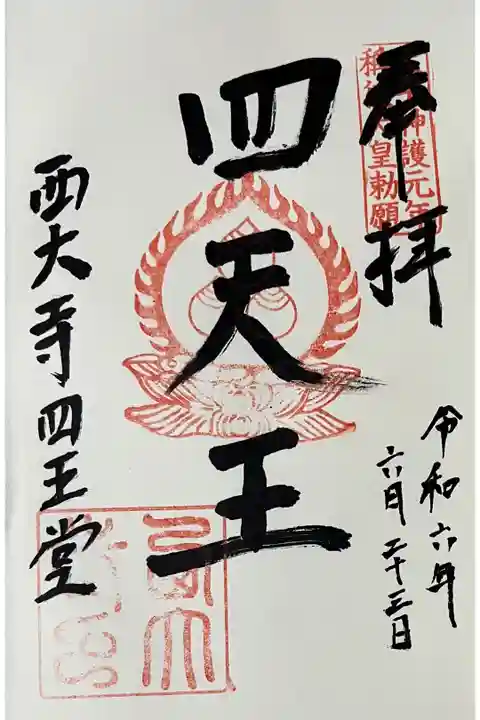 奉拝
神護元年
稱 皇勅願
令和六年
六月二十三日
四天王
西大寺四王堂